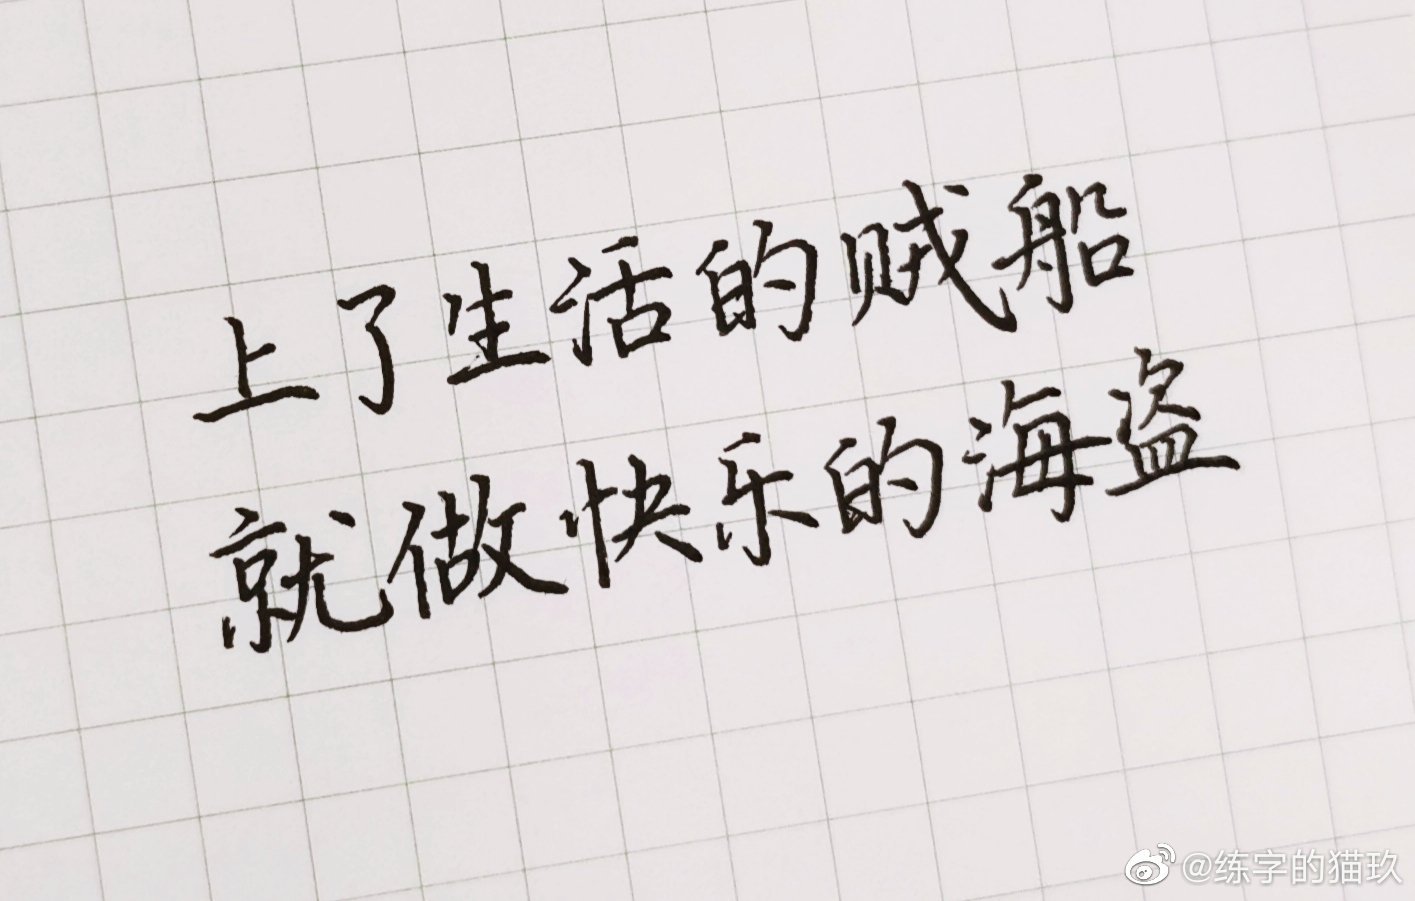 上了生活的贼船
就做快乐的海盗
@练字的猫玖